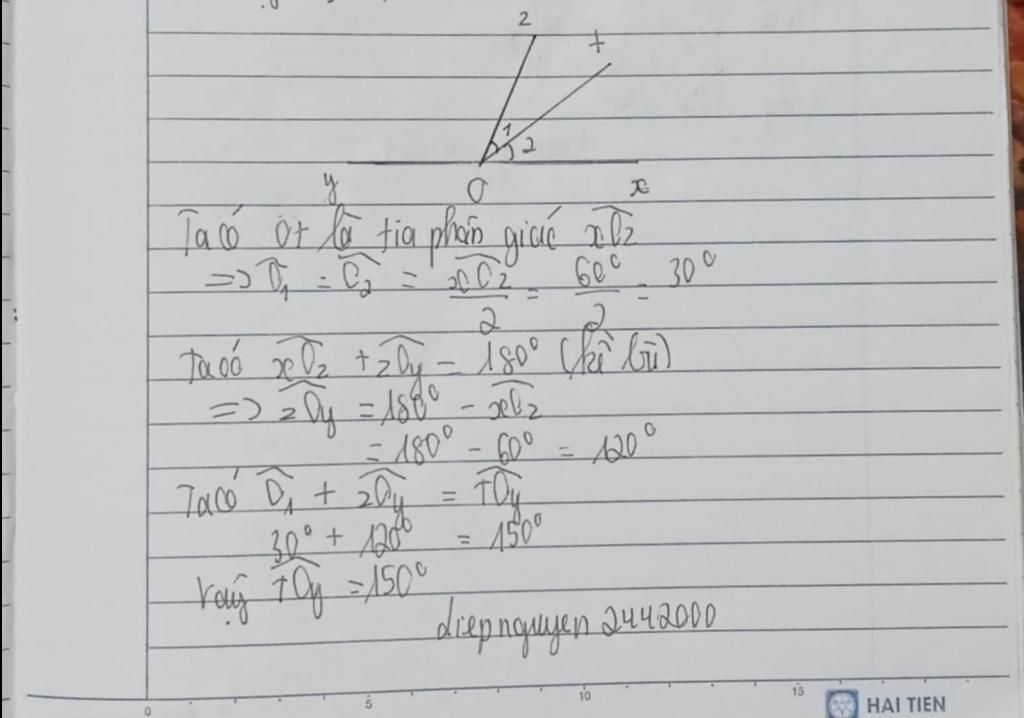 z t
1 2
y O x
Ta có Ot là tia phân giác xOz
=> O1 = O2 = xOz/2 = 60°/2 = 30°
Ta có xOz + zOy = 180° (kề bù)
=> zOy = 180° - xOz
= 180° - 60° = 120°
Ta có O1 + zOy = tOy
30° + 120° = 150°
Vậy tOy = 150°
diepnguyen 2442000
0 5 10 15
HAI TIEN